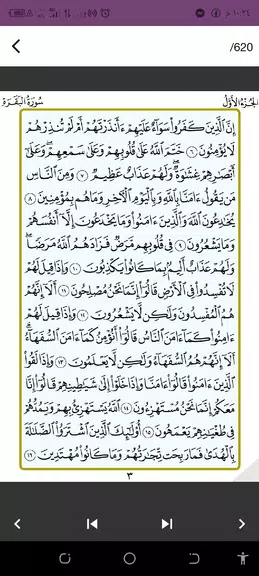 ١٠:٢٤ م
/620
الجزء الأول سورة البقرة
إِنَّ ٱلَّذِينَ كَفَرُوا۟ سَوَآءٌ عَلَيْهِمْ ءَأَنذَرْتَهُمْ أَمْ لَمْ تُنذِرْهُمْ
لَا يُؤْمِنُونَ ٦ خَتَمَ ٱللَّهُ عَلَىٰ قُلُوبِهِمْ وَعَلَىٰ سَمْعِهِمْ ۖ وَعَلَىٰٓ
أَبْصَـٰرِهِمْ غِشَـٰوَةٌ ۖ وَلَهُمْ عَذَابٌ عَظِيمٌ ٧ وَمِنَ ٱلنَّاسِ
مَن يَقُولُ ءَامَنَّا بِٱللَّهِ وَبِٱلْيَوْمِ ٱلْـَٔاخِرِ وَمَا هُم بِمُؤْمِنِينَ ٨
يُخَـٰدِعُونَ ٱللَّهَ وَٱلَّذِينَ ءَامَنُوا۟ وَمَا يَخْدَعُونَ إِلَّآ أَنفُسَهُمْ
وَمَا يَشْعُرُونَ ٩ فِى قُلُوبِهِم مَّرَضٌ فَزَادَهُمُ ٱللَّهُ مَرَضًا ۖ
وَلَهُمْ عَذَابٌ أَلِيمٌۢ بِمَا كَانُوا۟ يَكْذِبُونَ ١٠ وَإِذَا قِيلَ لَهُمْ
لَا تُفْسِدُوا۟ فِى ٱلْأَرْضِ قَالُوٓا۟ إِنَّمَا نَحْنُ مُصْلِحُونَ ١١ أَلَآ إِنَّهُمْ
هُمُ ٱلْمُفْسِدُونَ وَلَـٰكِن لَّا يَشْعُرُونَ ١٢ وَإِذَا قِيلَ لَهُمْ
ءَامِنُوا۟ كَمَآ ءَامَنَ ٱلنَّاسُ قَالُوٓا۟ أَنُؤْمِنُ كَمَآ ءَامَنَ ٱلسُّفَهَآءُ ۗ
أَلَآ إِنَّهُمْ هُمُ ٱلسُّفَهَآءُ وَلَـٰكِن لَّا يَعْلَمُونَ ١٣ وَإِذَا لَقُوا۟
ٱلَّذِينَ ءَامَنُوا۟ قَالُوٓا۟ ءَامَنَّا وَإِذَا خَلَوْا۟ إِلَىٰ شَيَـٰطِينِهِمْ قَالُوٓا۟ إِنَّا
مَعَكُمْ إِنَّمَا نَحْنُ مُسْتَهْزِءُونَ ١٤ ٱللَّهُ يَسْتَهْزِئُ بِهِمْ وَيَمُدُّهُمْ
فِى طُغْيَـٰنِهِمْ يَعْمَهُونَ ١٥ أُو۟لَـٰٓئِكَ ٱلَّذِينَ ٱشْتَرَوُا۟ ٱلضَّلَـٰلَةَ
بِٱلْهُدَىٰ فَمَا رَبِحَت تِّجَـٰرَتُهُمْ وَمَا كَانُوا۟ مُهْتَدِينَ ١٦
٣